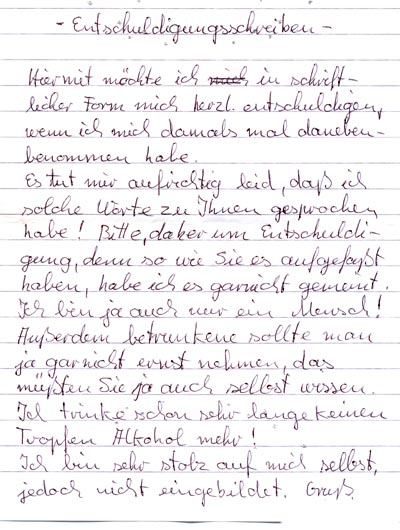 - Entschuldigungsschreiben -
Hiermit möchte ich mich in schrift-
licher Form mich herzl. entschuldigen,
wenn ich mich damals mal daneben-
benommen habe.
Es tut mir aufrichtig leid, daß ich
solche Worte zu Ihnen gesprochen
habe! Bitte, daher um Entschuldi-
gung, denn so wie Sie es aufgefaßt
haben, habe ich es garnicht gemeint.
Ich bin ja auch nur ein Mensch!
Außerdem betrunkene sollte man
ja garnicht ernst nehmen, das
müßten Sie ja auch selbst wissen.
Ich trinke schon sehr lange keinen
Tropfen Alkohol mehr!
Ich bin sehr stolz auf mich selbst,
jedoch nicht eingebildet. Gruß.